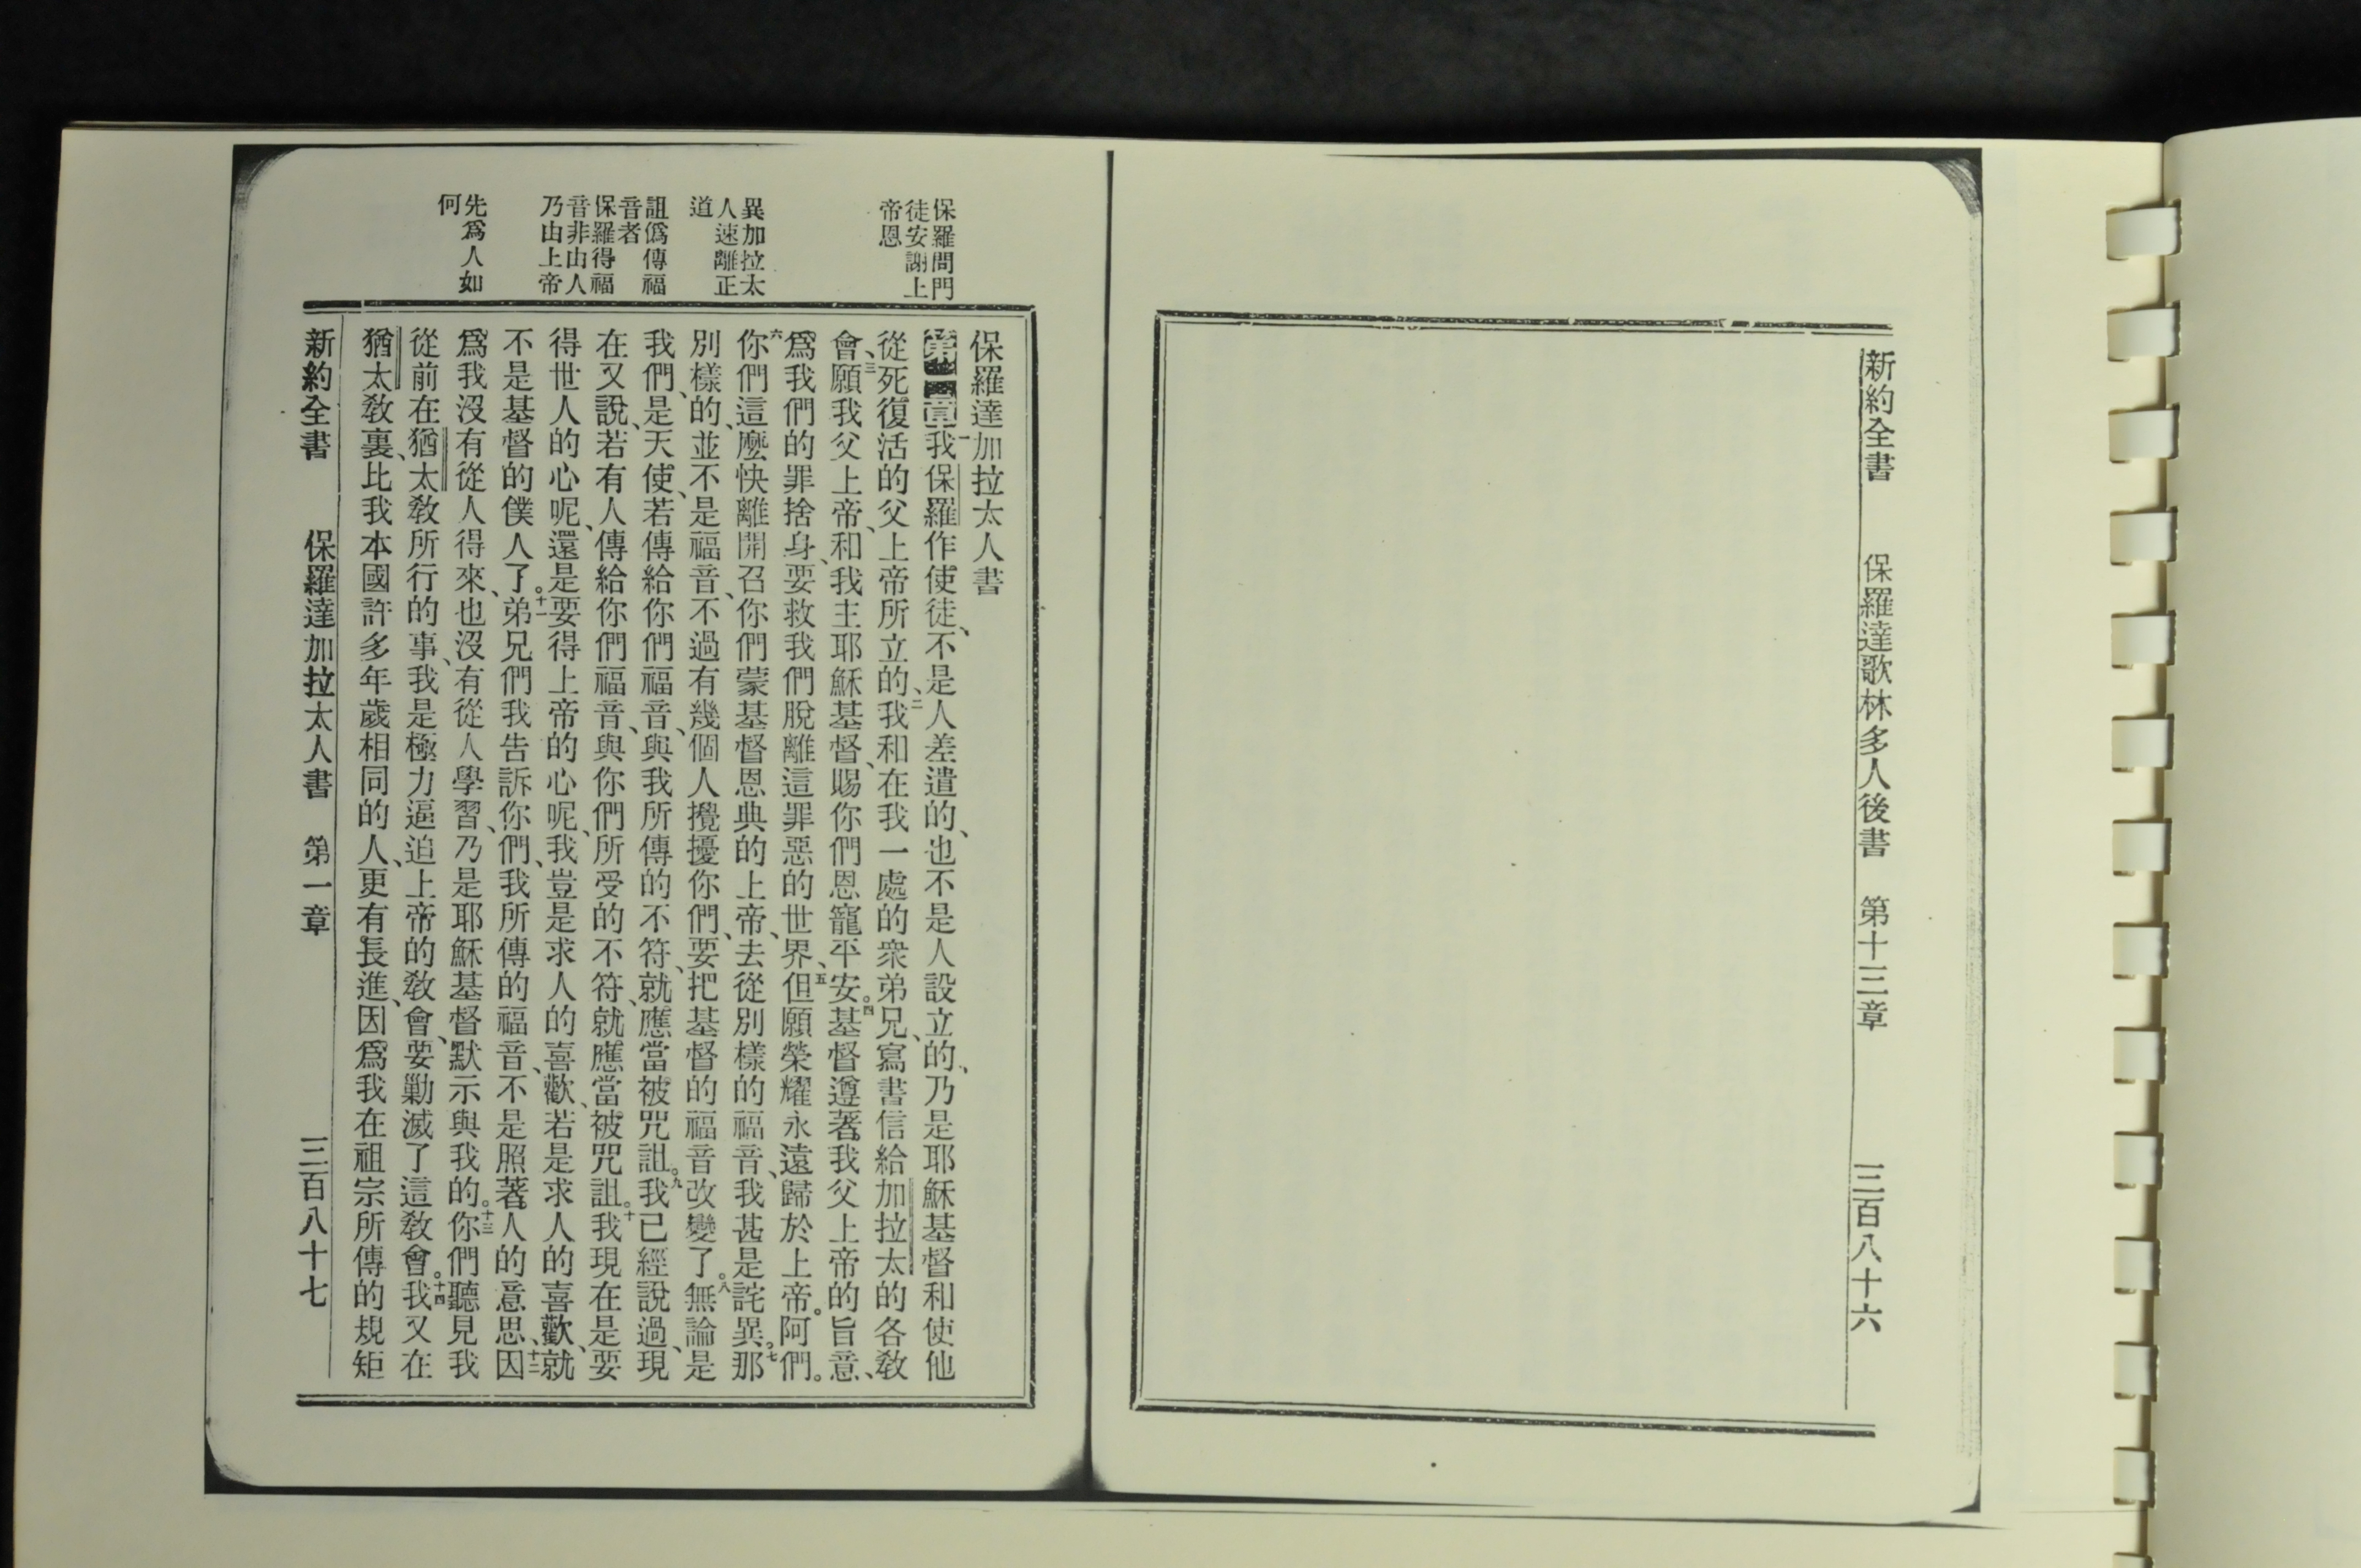 新約全書　保羅達歌林多人後書　第十三章　三百八十六
保羅問門
徒安謝上
帝恩
異加拉太
人速離正
道
詛僞傳福
音者
保羅得福
音非由人
乃由上帝
先爲人如
何
保羅達加拉太人書
第一章一我保羅作使徒、不是人差遣的、也不是人設立的、乃是耶穌基督和使他
從死復活的父上帝所立的、二我和在我一處的衆弟兄、寫書信給加拉太的各敎
會、三願我父上帝、和我主耶穌基督、賜你們恩寵平安。四基督遵著我父上帝的旨意、
爲我們的罪捨身、要救我們脫離這罪惡的世界、五但願榮耀永遠歸於上帝。阿們。
六你們這麼快離開召你們蒙基督恩典的上帝、去從別樣的福音、我甚是詫異。七那
別樣的、並不是福音、不過有幾個人攪擾你們、要把基督的福音改變了。八無論是
我們、是天使、若傳給你們福音、與我所傳的不符、就應當被咒詛。九我已經說過、現
在又說、若有人傳給你們福音、與你們所受的不符、就應當被咒詛。十我現在是要
得世人的心呢、還是要得上帝的心呢、我豈是求人的喜歡、若是求人的喜歡、就
不是基督的僕人了。十一弟兄們我告訴你們、我所傳的福音、不是照著人的意思、十二因
爲我沒有從人得來、也沒有從人學習、乃是耶穌基督默示與我的。十三你們聽見我
從前在猶太敎所行的事、我是極力逼迫上帝的敎會、要勦滅了這敎會。十四我又在
猶太敎裏、比我本國許多年歲相同的人、更有長進、因爲我在祖宗所傳的規矩
新約全書　保羅達加拉太人書　第一章　三百八十七